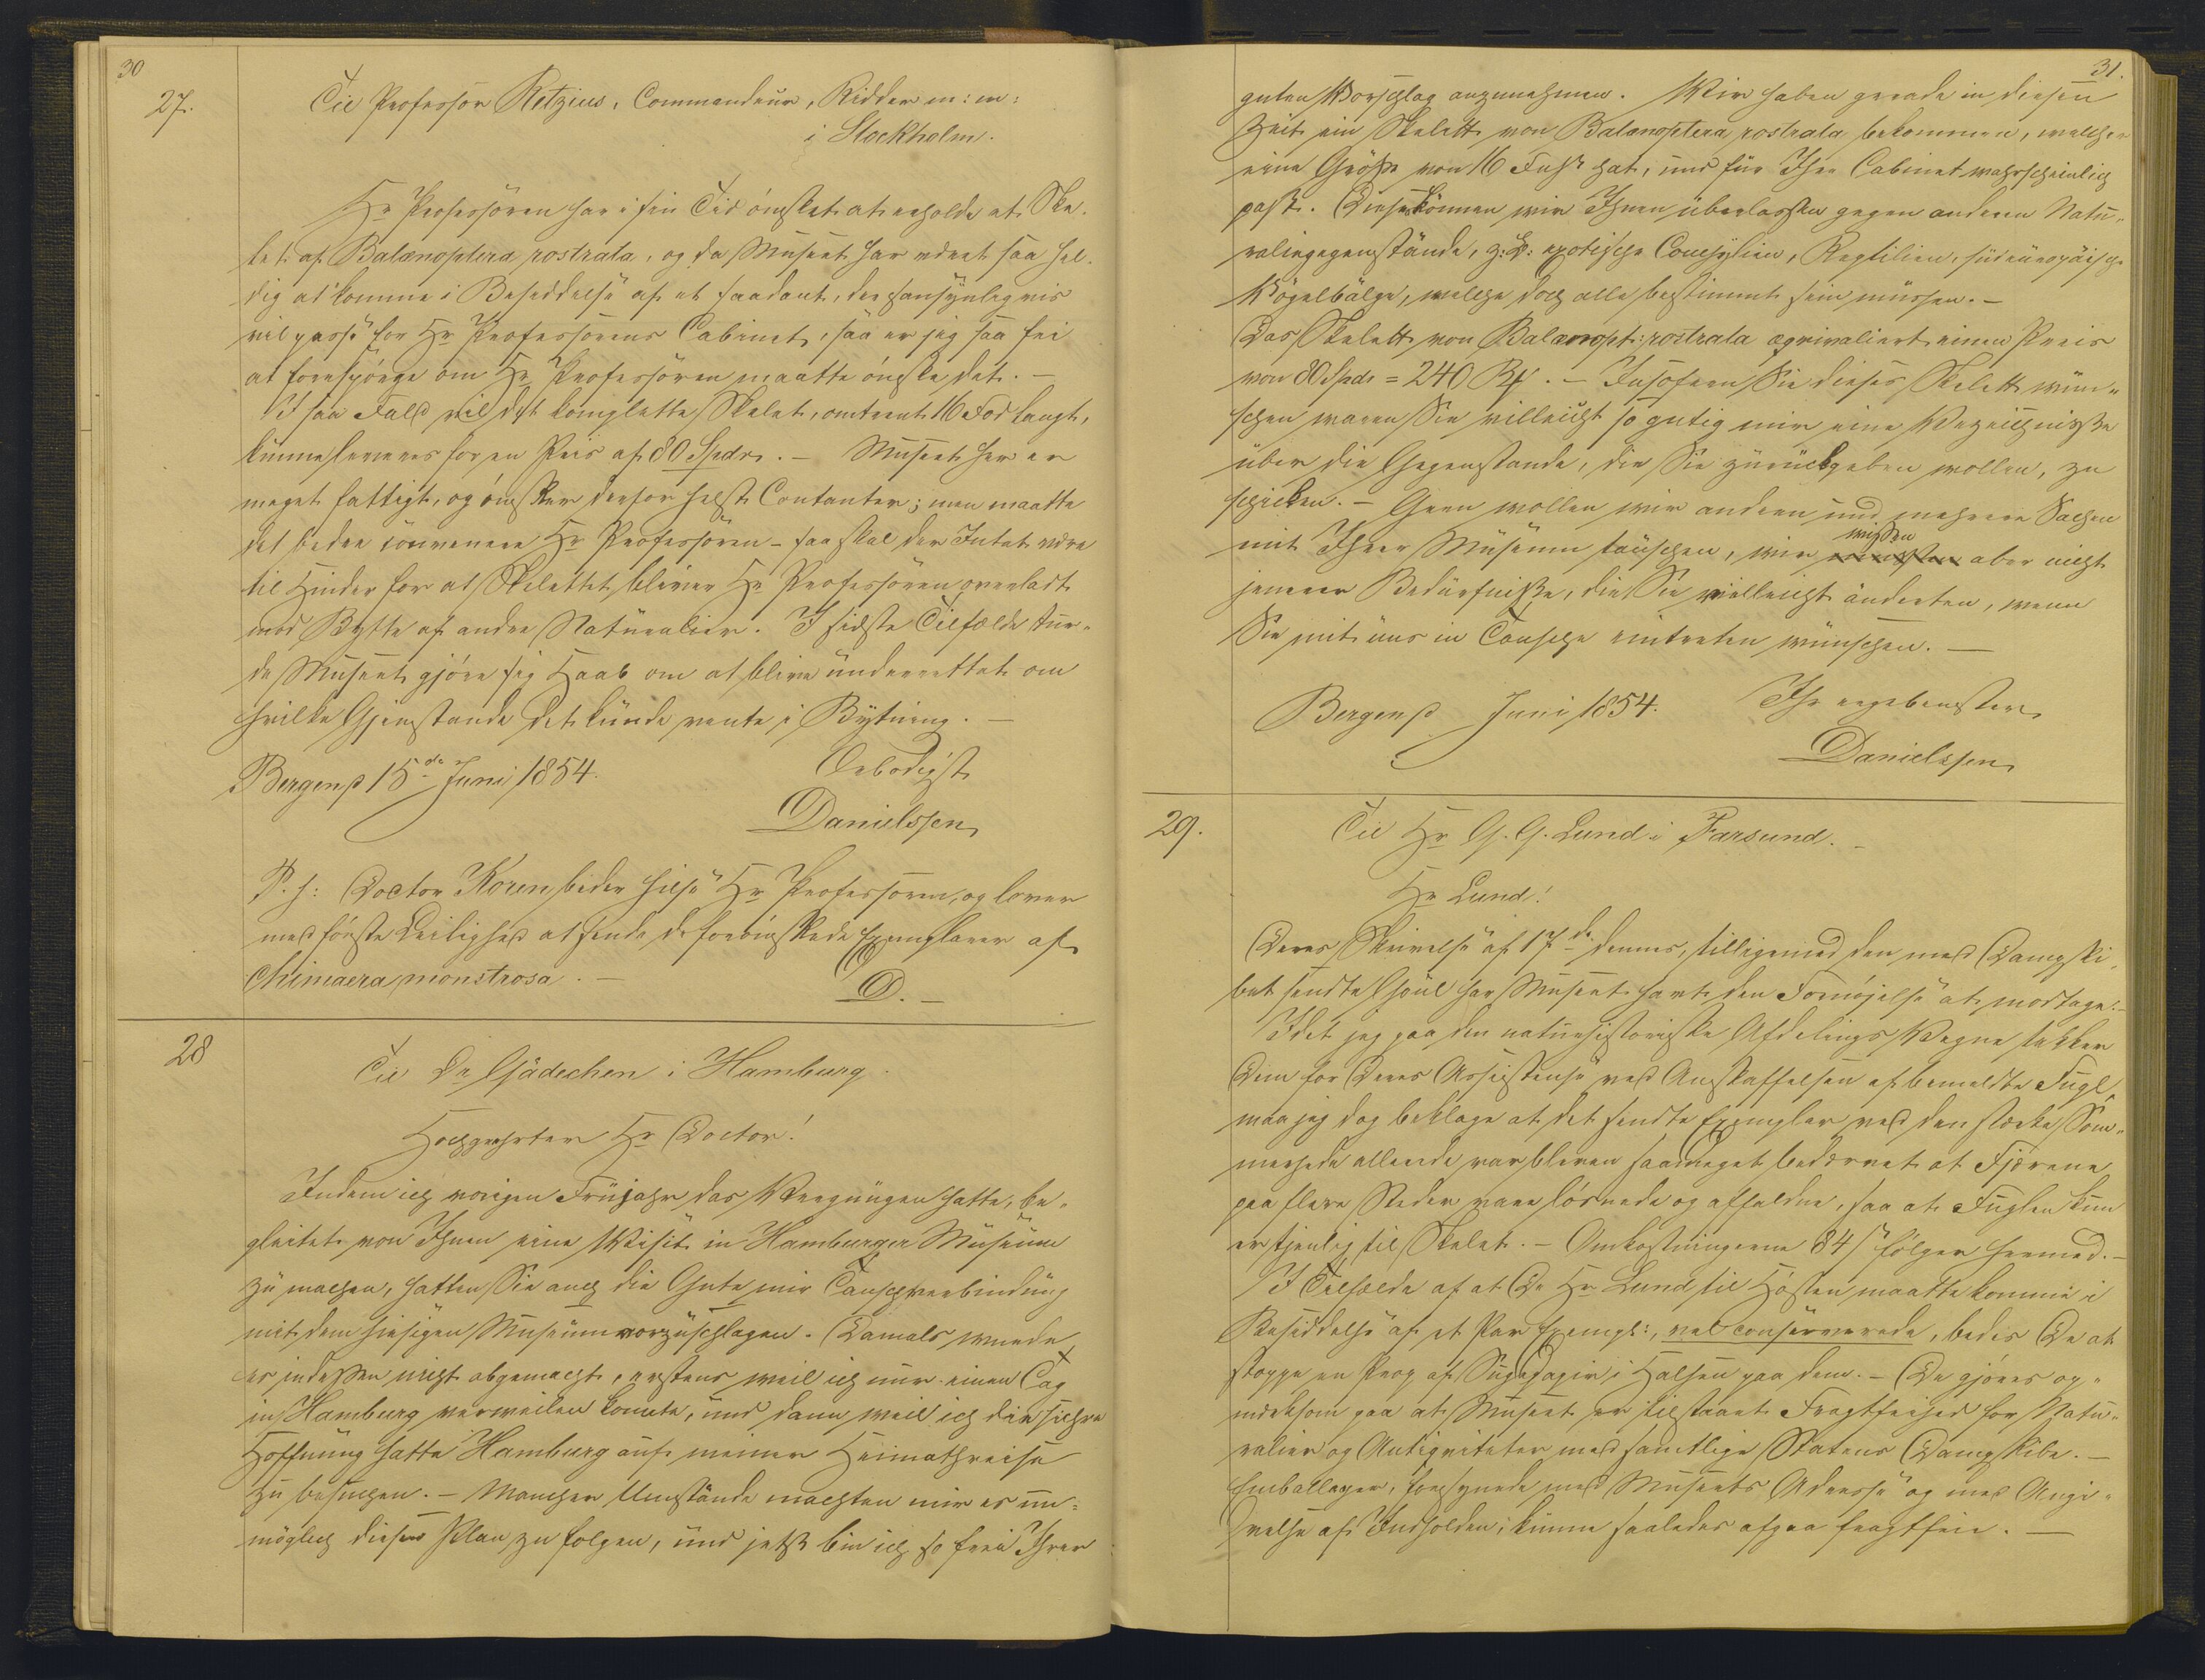 30
27.
Til Professor Retzius, Commandeur, Ridder m: m:
i Stockholm.
Hr Professoren har i sin Tid ónsket at erholde et Ske-
let af Balænoptera rostrata, og da Museet har været saa hel-
dig at komme i Besiddelse af et saadant, der sansynligviis
vil passe for Hr Professorens Cabinet, saa er jeg saa fri
at forespórge om Hr Professoren maatte ónske det. —
I saa Fald vil det komplette Skelet, omtrent 16 Fod langt,
kunne leveres for en Priis af 80 Spdr. — Museet her er
meget fattigt, og ónsker derfor helst Contanter; men maatte
det bedre convenere Hr Professoren – saa skal der Intet være
til Hinder for at Skelettet bliver Hr Professoren overladt
mod Bytte af andre Naturalier. I sidste Tilfælde tur-
de Museet gjóre sig Haab om at blive underrettet om
hvilke Gjenstande det kunde vente i Bytning. —
Bergen, d 15de Juni 1854.
Ærbódigst
Danielssen
P. S: Doctor Koren beder hilse Hr Professoren, og lover
med fórste Leilighed at sende de forónskede Exemplarer af
Chimaera monstrosa. —
D. —
28
Til Dr Gädechen i Hamburg.
Hochgeehrter Hr Doctor!
Indem ich vorigen Früjahr das Vergnügen hatte, be-
gleitet von Ihnen eine Visit in Hamburger Museum
zu machen, hatten Sie auch die Gute mir Tauschverbindung
mit dem hiesigen Museum vorzuschlagen. Damals wurde
es indessen nicht abgemacht, erstens weil ich nur einen Tag
in Hamburg verweilen konnte, und dann weil ich die sichre
Hoffnung hatte Hamburg auf meiner Heimathreise
zu besuchen. – Mancher Umstände machten mir es un-
möglich diesen Plan zu folgen, und jetzt bin ich so frei Ihrer
31.
guten Vorschlag anzunehmen. Wir haben gerade in diesen
Zeit ein Skelett von Balænoptera rostrata bekommen, welcher
eine Größe von 16 Fuß hat, und für Ihre Cabinet wahrscheinlich
past. Diese können wir Ihnen überlassen gegen anderen Natu-
raliegegenstände, z: B: exotische Conchylien, Reptilien, südeuropäische
Vögelbälge, welche doch alle bestimmt sein müssen. —
Das Skelett von Balænopt: rostrata æqvivaliert einen Preis
von 80 Spdr = 240 Rf. – Insofern Sie dieses Skelett wün-
schen waren Sie villeicht so gutig mir eine Verzeichnisse
über die Gegenstande, die Sie zurückgeben wollen, zu
schicken. – Gern wollen wir andern und mehrere Sachen
mit Ihrer Museum tauschen, wir wissen aber nicht
jenerer Bedürfnisse, die Sie vielleicht änderten, wenn
Sie mit uns in Tausche eintreten wünschen. —
Bergen, d Juni 1854.
Ihr ergebenster
Danielssen
29.
Til Hr G. G. Lund i Farsund. –
Hr Lund!
Deres Skrivelse af 17de dennes, tilligemed den med Dampski-
bet sendte Hjeul har Museet havt den Fornójelse at modtage. –
Idet jeg paa den naturhistoriske Afdelings Vegne takker
Dem for Deres Assistense ved Anskaffelsen af bemeldte Fugl,
maa jeg dog beklage at det sendte Exemplar ved den stærke Som-
merhede allerede var bleven saameget bedærvet at Fjærene
paa flere Steder vare lósnede og affaldne, saa at Fuglen kun
er tjenlig til Skelet. – Omkostningerne 84 s fólger hermed. –
I Tilfælde af at De Hr Lund til Hósten maatte komme i
Besiddelse af et Par Exempl:, vel conserverede, bedes De at
stoppe en Prop af Sugepapir i Halsen paa dem. – De gjóres op-
mærksom paa at Museet er tilstaaet Fragtfrihed for Natu-
ralier og Antiqviteter med samtlige Statens Dampskibe. —
Emballager, forsynede med Museets Adresse og med Angi-
velse af Indholden, kunne saaledes afgaa fragtfrie. —